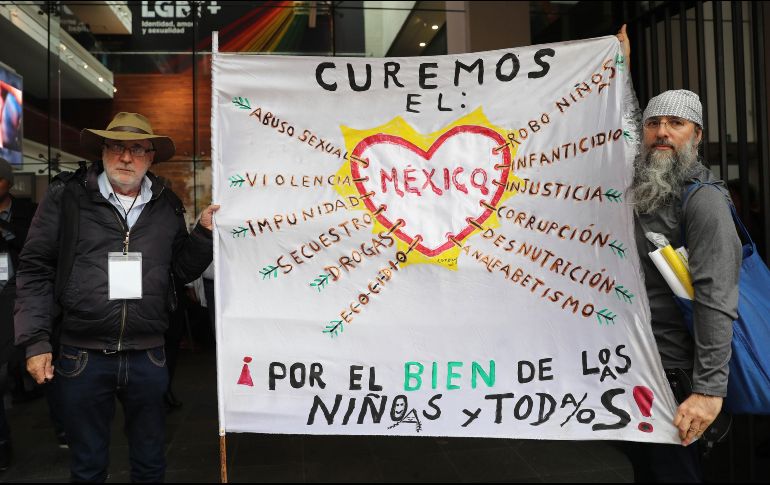 LGBT+
Identidad, amor
y sexualidad
CUREMOS
EL:
ABUSO SEXUAL
VIOLENCIA
IMPUNIDAD
SECUESTRO
DROGAS
ECOCIDIO
MÉXICO
ROBO NIÑOS
INFANTICIDIO
INJUSTICIA
CORRUPCIÓN
DESNUTRICIÓN
ANALFABETISMO
¡POR EL BIEN DE LOS/AS
NIÑOS/AS Y TODA/OS!